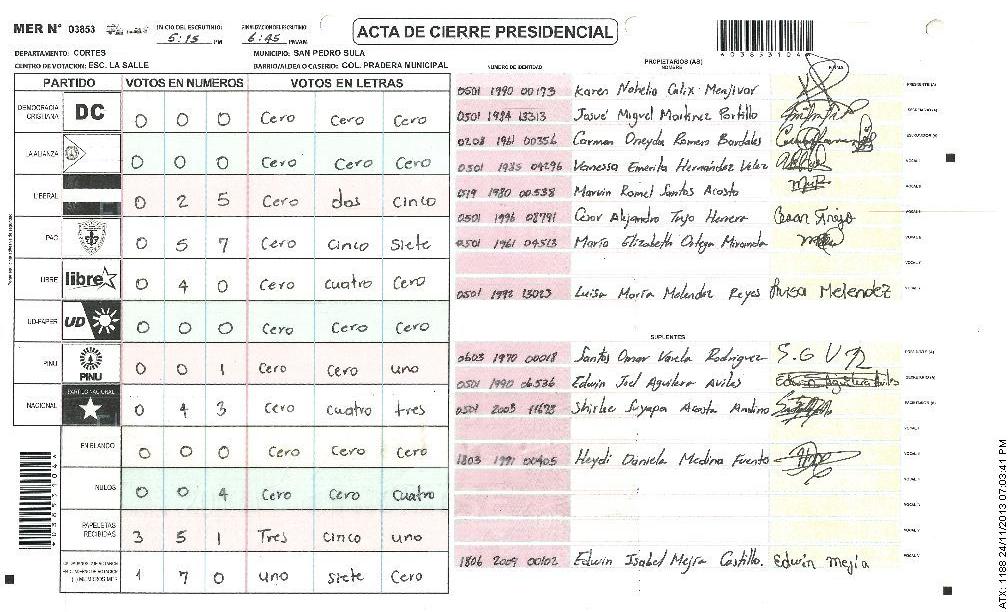 MER N° 03853
INICIO DEL ESCRUTINIO: 5:15 PM
FINALIZACION DEL ESCRUTINIO: 6:45 PM/AM
ACTA DE CIERRE PRESIDENCIAL
DEPARTAMENTO: CORTES
MUNICIPIO: SAN PEDRO SULA
CENTRO DE VOTACION: ESC. LA SALLE
BARRIO/ALDEA O CASERIO: COL. PRADERA MUNICIPAL
PARTIDO VOTOS EN NUMEROS VOTOS EN LETRAS
DEMOCRACIA CRISTIANA DC 0 0 0 Cero Cero Cero
LA ALIANZA 0 0 0 Cero Cero Cero
LIBERAL 0 2 5 Cero dos cinco
PAC 0 5 7 Cero Cinco Siete
LIBRE libre 0 4 0 Cero cuatro Cero
UD-FAPER UD 0 0 0 Cero Cero Cero
PINU PINU 0 0 1 Cero Cero uno
NACIONAL PARTIDO NACIONAL 0 4 3 Cero cuatro tres
EN BLANCO 0 0 0 Cero Cero Cero
NULOS 0 0 4 Cero Cero Cuatro
PAPELETAS RECIBIDAS 3 5 1 Tres cinco uno
1 7 0 uno siete Cero
NUMERO DE IDENTIDAD
PROPIETARIOS (AS)
NOMBRE
FIRMA
0501 1990 00173 Karen Nohelia Calix Menjivar
PRESIDENTE (A)
0501 1984 13313 Josué Miguel Martinez Portillo
SECRETARIO (A)
0208 1961 00356 Carmen Oneyda Romero Bardales
ESCRUTADOR (A)
0501 1985 04296 Vanessa Emerita Hernández Velez
1980 00538 Marvin Romel Santos Acosta
0501 1996 08791 Cesar Alejandro Trejo Herrera Cesar Trejo
0501 1961 04513 María Elizabeth Ortega Miranda
0501 1992 13023 Luisa María Melendez Reyes Luisa Melendez
SUPLENTES
0603 1970 00018 Santos Omar Varela Rodriguez
0501 1990 06536 Edwin Joel Aguilera Aviles
0501 2003 Shirlee Suyapa Acosta Andino
1803 1991 00405 Heydi Daniela Medina Fuento
1806 2009 00102 Edwin Isabel Mejía Castillo. Edwin Mejía
ATX: 1188 24/11/2013 07:03:41 PM